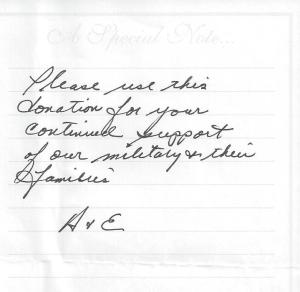 A Special Note...
Please use this
donation for your
continued support
of our military & their
families
A & E